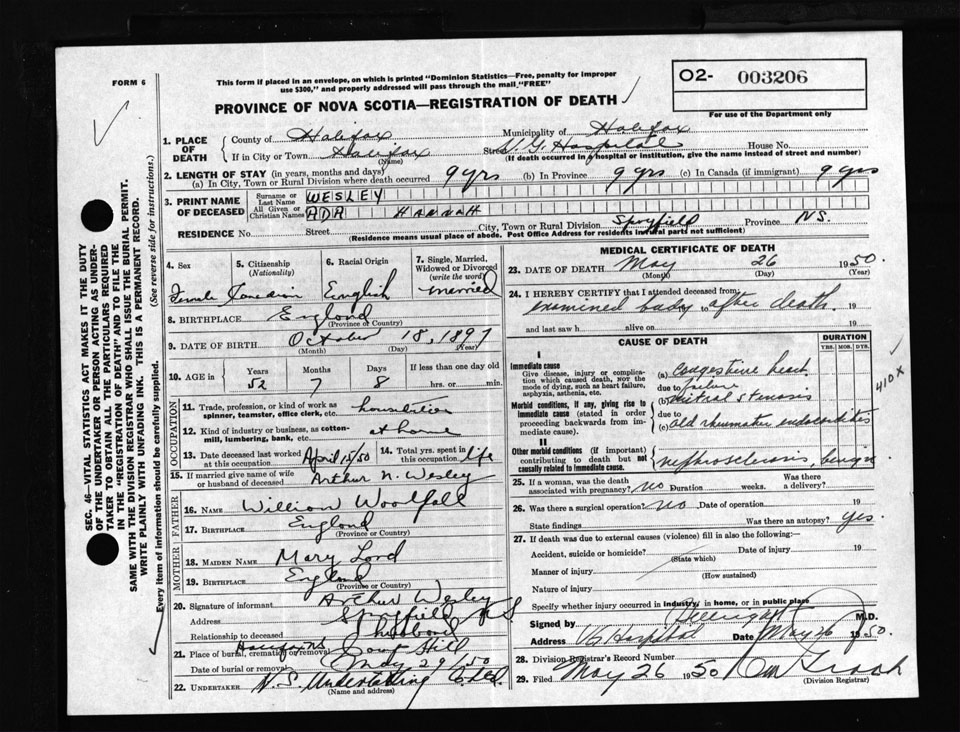 FORM 6
This form if placed in an envelope, on which is printed "Dominion Statistics—Free, penalty for improper
use $300," and properly addressed will pass through the mail "FREE"
O2- 003206
For use of the Department only
PROVINCE OF NOVA SCOTIA—REGISTRATION OF DEATH
1. PLACE OF DEATH
County of Halifax Municipality of Halifax
If in City or Town Halifax Street V. G. Hospital House No.
(Name) (If death occurred in a hospital or institution, give the name instead of street and number)
2. LENGTH OF STAY (in years, months and days)
(a) In City, Town or Rural Division where death occurred 9 yrs (b) In Province 9 yrs (c) In Canada (if immigrant) 9 yrs
3. PRINT NAME OF DECEASED
Surname or Last Name WESLEY
All Given or Christian Names ADA HANNAH
RESIDENCE No. Street City, Town or Rural Division Spryfield Province N.S.
(Residence means usual place of abode. Post Office Address for residents in rural parts not sufficient)
SEC. 46—VITAL STATISTICS ACT MAKES IT THE DUTY
OF THE UNDERTAKER OR PERSON ACTING AS UNDER-
TAKER TO OBTAIN ALL THE PARTICULARS REQUIRED
IN THE "REGISTRATION OF DEATH" AND TO FILE THE
SAME WITH THE DIVISION REGISTRAR WHO SHALL ISSUE THE BURIAL PERMIT.
WRITE PLAINLY WITH UNFADING INK. THIS IS A PERMANENT RECORD.
Every item of information should be carefully supplied. (See reverse side for instructions.)
4. Sex
Female
5. Citizenship
(Nationality)
Canadian
6. Racial Origin
English
7. Single, Married,
Widowed or Divorced
(write the word)
Married
8. BIRTHPLACE England
(Province or Country)
9. DATE OF BIRTH October 18, 1897
(Month) (Day) (Year)
10. AGE in Years Months Days If less than one day old
52 7 8 hrs. or min.
OCCUPATION
11. Trade, profession, or kind of work as
spinner, teamster, office clerk, etc. housewife
12. Kind of industry or business, as cotton-
mill, lumbering, bank, etc. at home
13. Date deceased last worked
at this occupation April 15/50
14. Total yrs. spent in
this occupation life
15. If married give name of wife
or husband of deceased Arthur N. Wesley
FATHER
16. NAME William Woolfall
17. BIRTHPLACE England
(Province or Country)
MOTHER
18. MAIDEN NAME Mary Lord
19. BIRTHPLACE England
(Province or Country)
20. Signature of informant Arthur Wesley
Address Spryfield N S
Relationship to deceased husband
21. Place of burial, cremation or removal Halifax N.S.
Date of burial or removal May 29/50
22. UNDERTAKER N.S. Undertaking Co. Ltd.
(Name and address)
MEDICAL CERTIFICATE OF DEATH
23. DATE OF DEATH May 26 1950.
(Month) (Day) (Year)
24. I HEREBY CERTIFY that I attended deceased from:
examined body to after death. 19
and last saw h alive on 19
CAUSE OF DEATH
DURATION
YRS. MOS. DYS.
I
Immediate cause
Give disease, injury or complica-
tion which caused death, not the
mode of dying, such as heart failure,
asphyxia, asthenia, etc.
(a) Congestive heart
due to failure
(b) mitral stenosis
Morbid conditions, if any, giving rise to
immediate cause (stated in order
proceeding backwards from im-
mediate cause).
due to
(c) old rheumatic endocarditis
410X
II
Other morbid conditions (if important)
contributing to death but not
causally related to immediate cause.
nephrosclerosis, benign
25. If a woman, was the death
associated with pregnancy? no Duration weeks. Was there
a delivery?
26. Was there a surgical operation? no Date of operation 19
State findings Was there an autopsy? yes.
27. If death was due to external causes (violence) fill in also the following:—
Accident, suicide or homicide? Date of injury 19
(State which)
Manner of injury
(How sustained)
Nature of injury
Specify whether injury occurred in industry, in home, or in public place
Signed by M.D.
Address V G Hospital Date May 26 1950.
28. Division Registrar's Record Number
29. Filed May 26 1950
(Division Registrar)